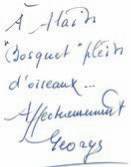 À Alain
"Bosquet" plein
d'oiseaux...
Affectueusement
Georges